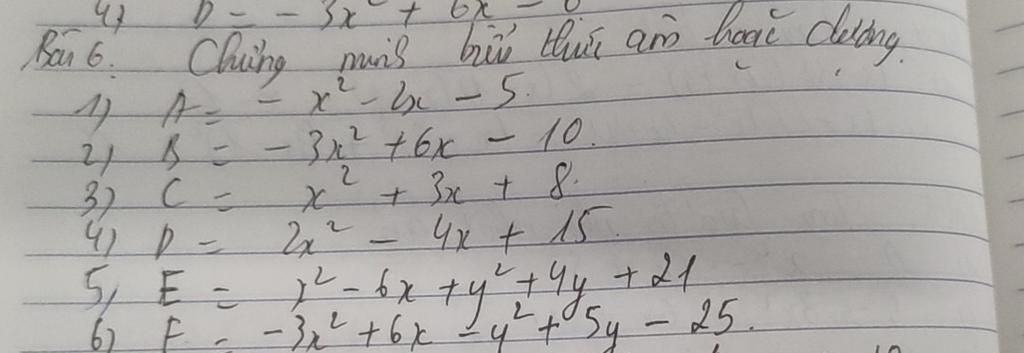 4) D = - 3x² + 6x -
Bài 6. Chứng minh biểu thức âm hoặc dương.
1) A = - x² - 2x - 5.
2) B = - 3x² + 6x - 10.
3) C = x² + 3x + 8.
4) D = 2x² - 4x + 15.
5) E = x² - 6x + y² + 4y + 21
6) F = -3x² + 6x - y² + 5y - 25.